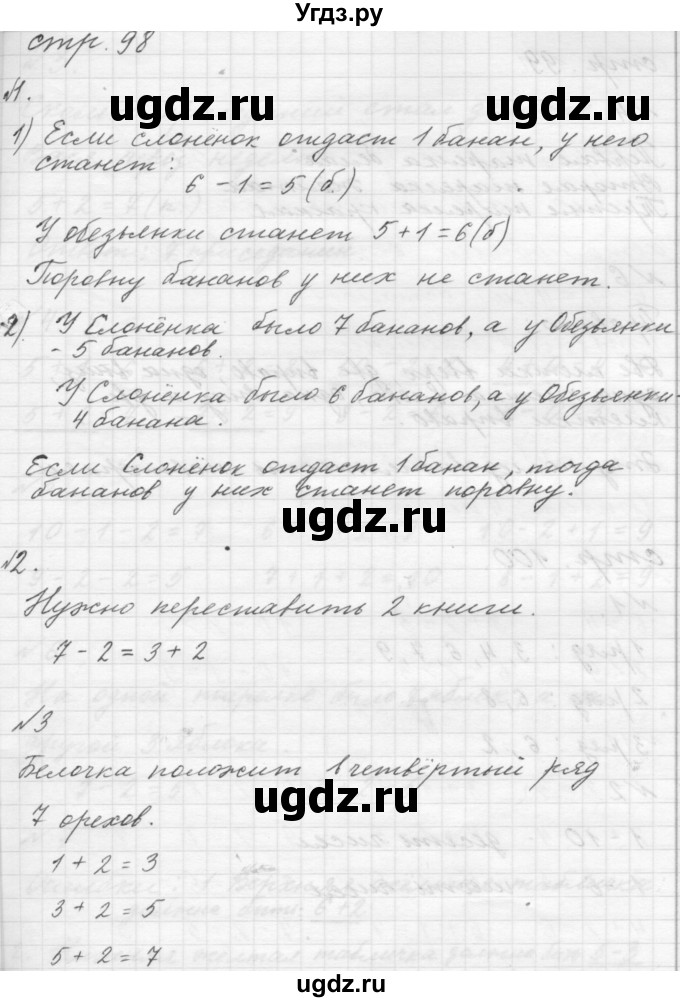 Угдз.ру
стр. 98
№1.
ugdz.ru
1) Если слонёнок отдаст 1 банан, у него
станет:
6 - 1 = 5 (б.)
ugdz.ru
У обезьянки станет 5 + 1 = 6 (б)
Поровну бананов у них не станет.
2) У Слонёнка было 7 бананов, а у Обезьянки
- 5 бананов.
ugdz.ru
У Слонёнка было 6 бананов, а у Обезьянки -
4 банана.
Если Слонёнок отдаст 1 банан, тогда
бананов у них станет поровну.
ugdz.ru
№2.
Нужно переставить 2 книги.
7 - 2 = 3 + 2
ugdz.ru
№3
Белочка положит в четвёртый ряд
ugdz.ru
7 орехов.
1 + 2 = 3
3 + 2 = 5
ugdz.ru
5 + 2 = 7
ugdz.ru